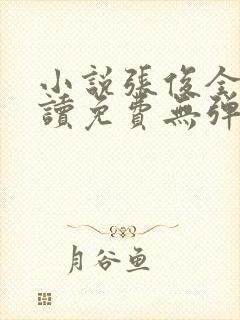 小說張俊全
讀免費無彈
月谷鱼